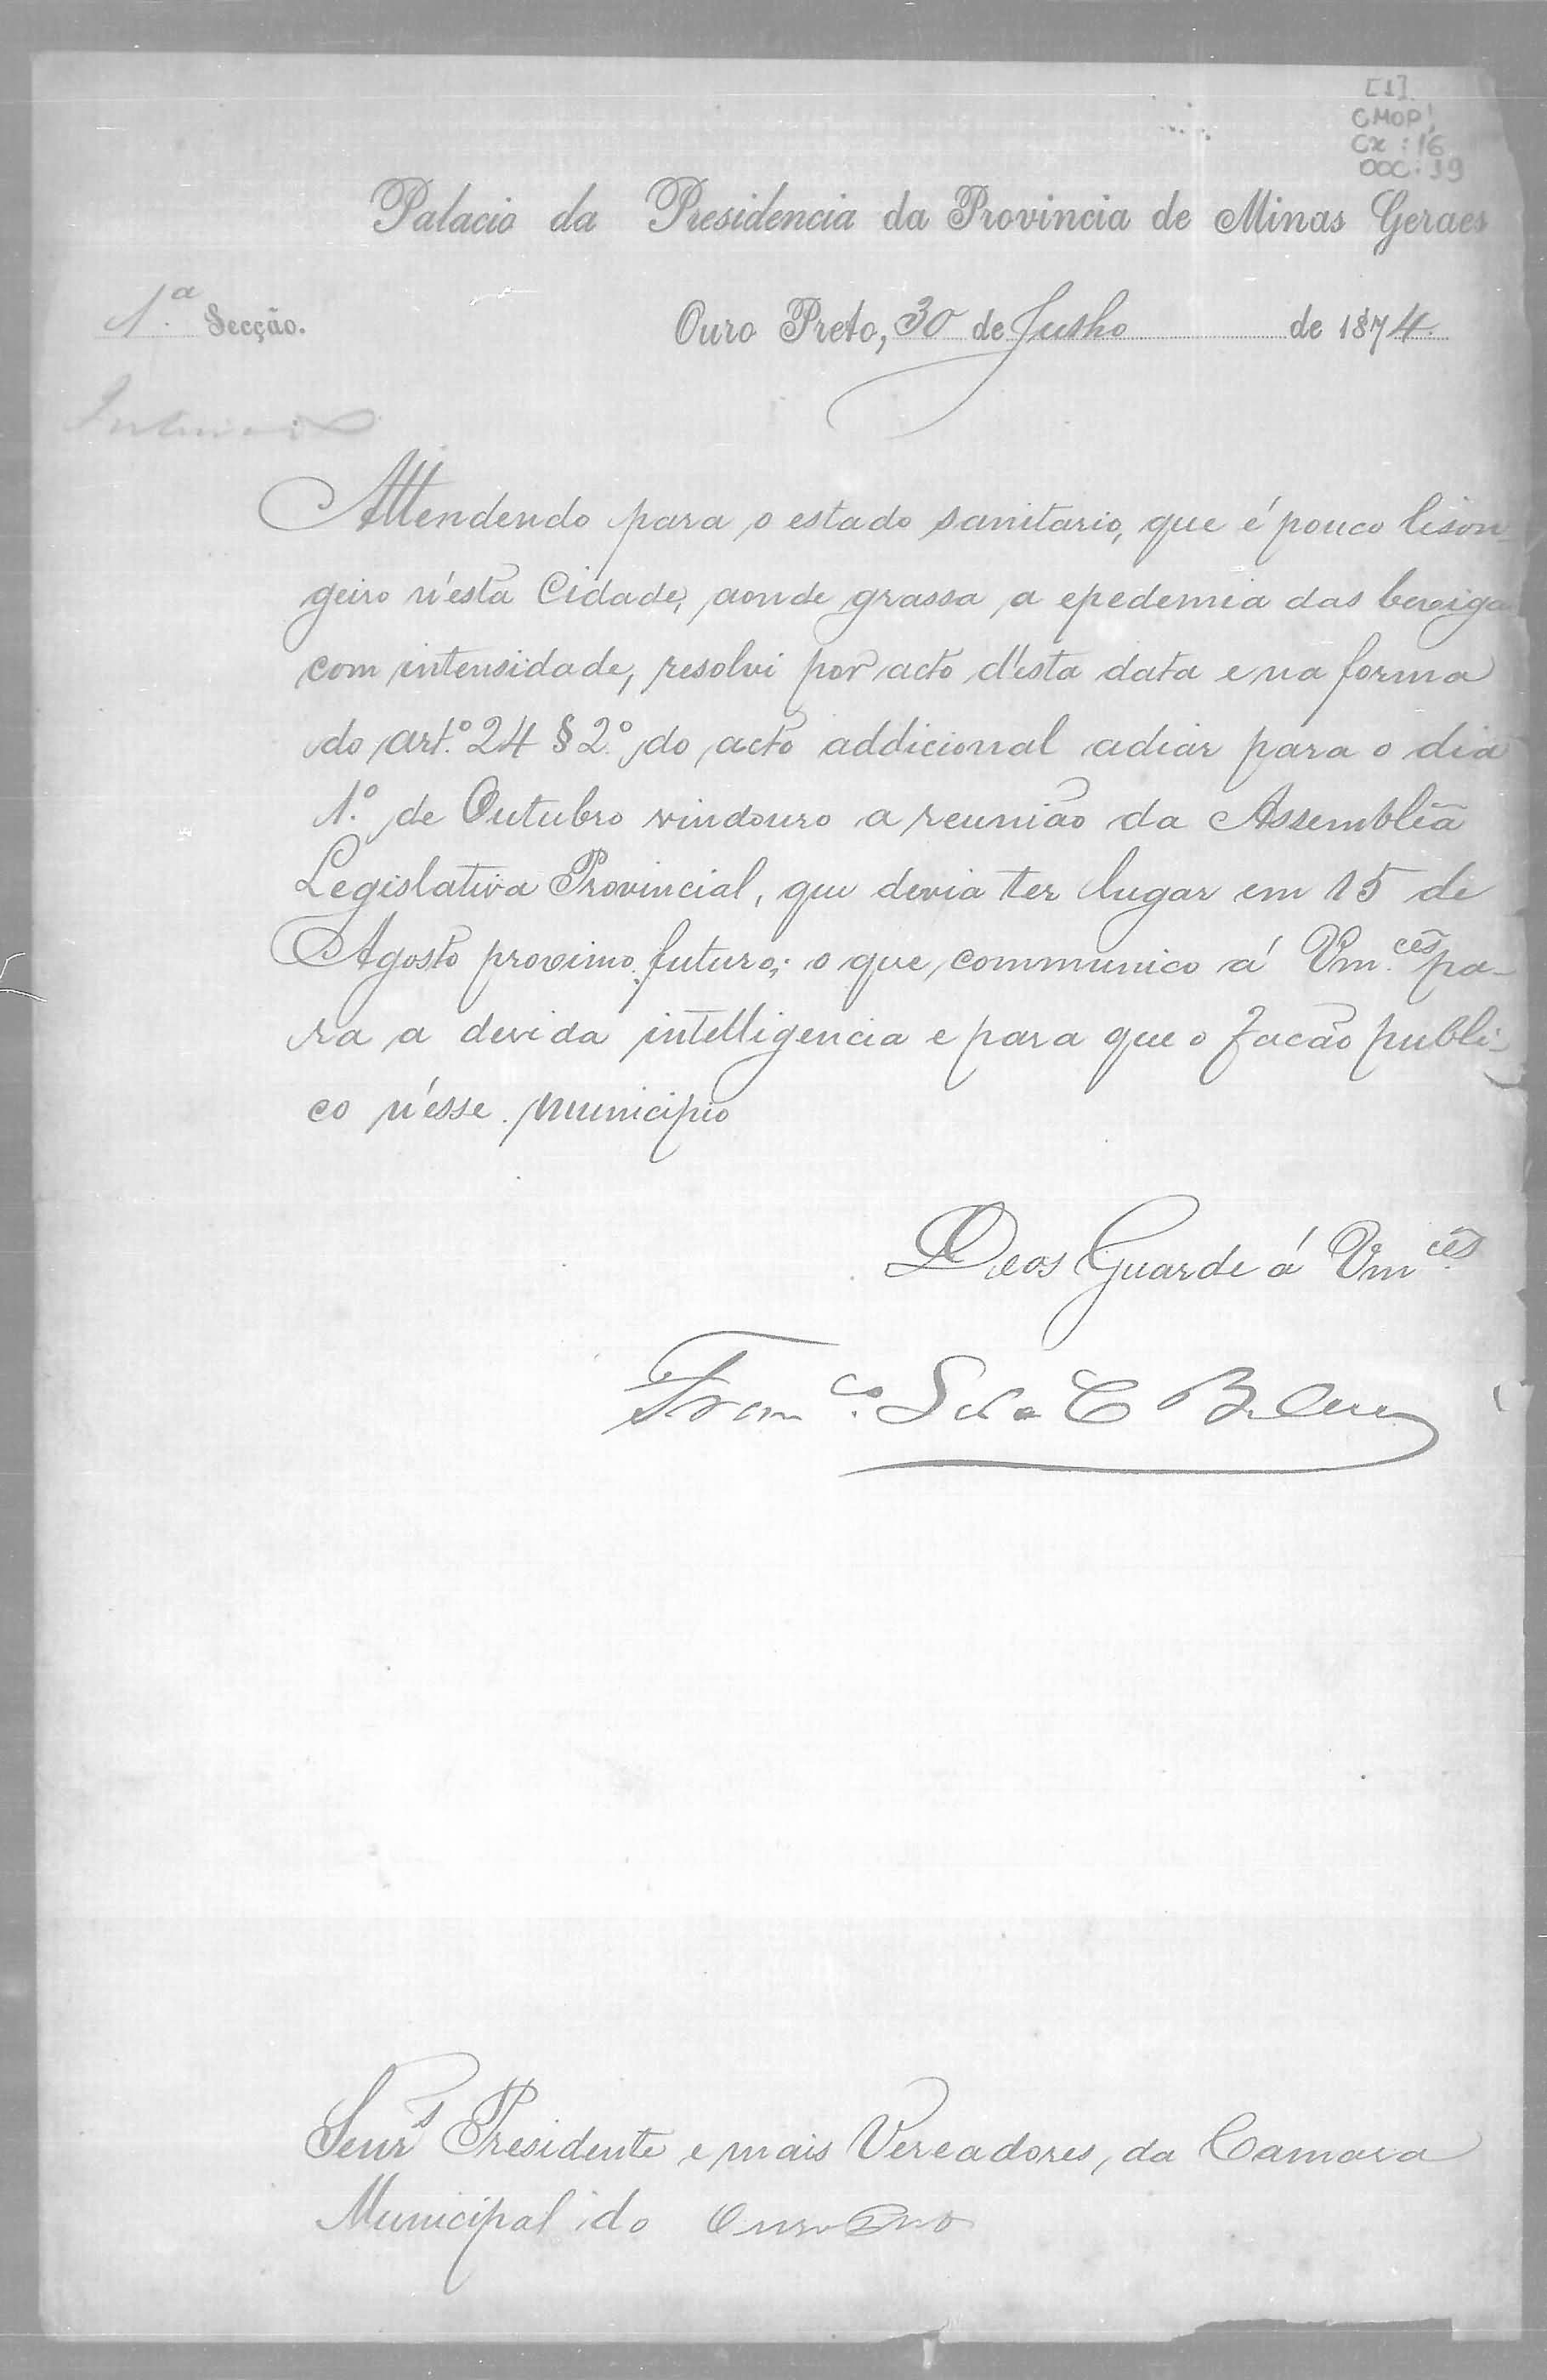 [1]
CMOP
CX: 16
DOC: 39
Palacio da Presidencia da Provincia de Minas Geraes
1.ª Secção.
Ouro Preto, 30 de Julho de 1874.
Attendendo para o estado sanitario, que é pouco lison-
geiro n'esta Cidade, aonde grassa a epedemia das bexigas
com intensidade, resolvi por acto d'esta data e na forma
do art.º 24 § 2.º do acto addicional adiar para o dia
1.º de Outubro vindouro a reunião da Assemblea
Legislativa Provincial, que devia ter lugar em 15 de
Agosto proximo futuro; o que communico á Vm.ces pa-
ra a devida intelligencia e para que o facão publi-
co n'esse municipio
Deos Guarde á Vm.ces
Fran.co
Senrs Presidente e mais Vereadores, da Camara
Municipal do Ouro Preto